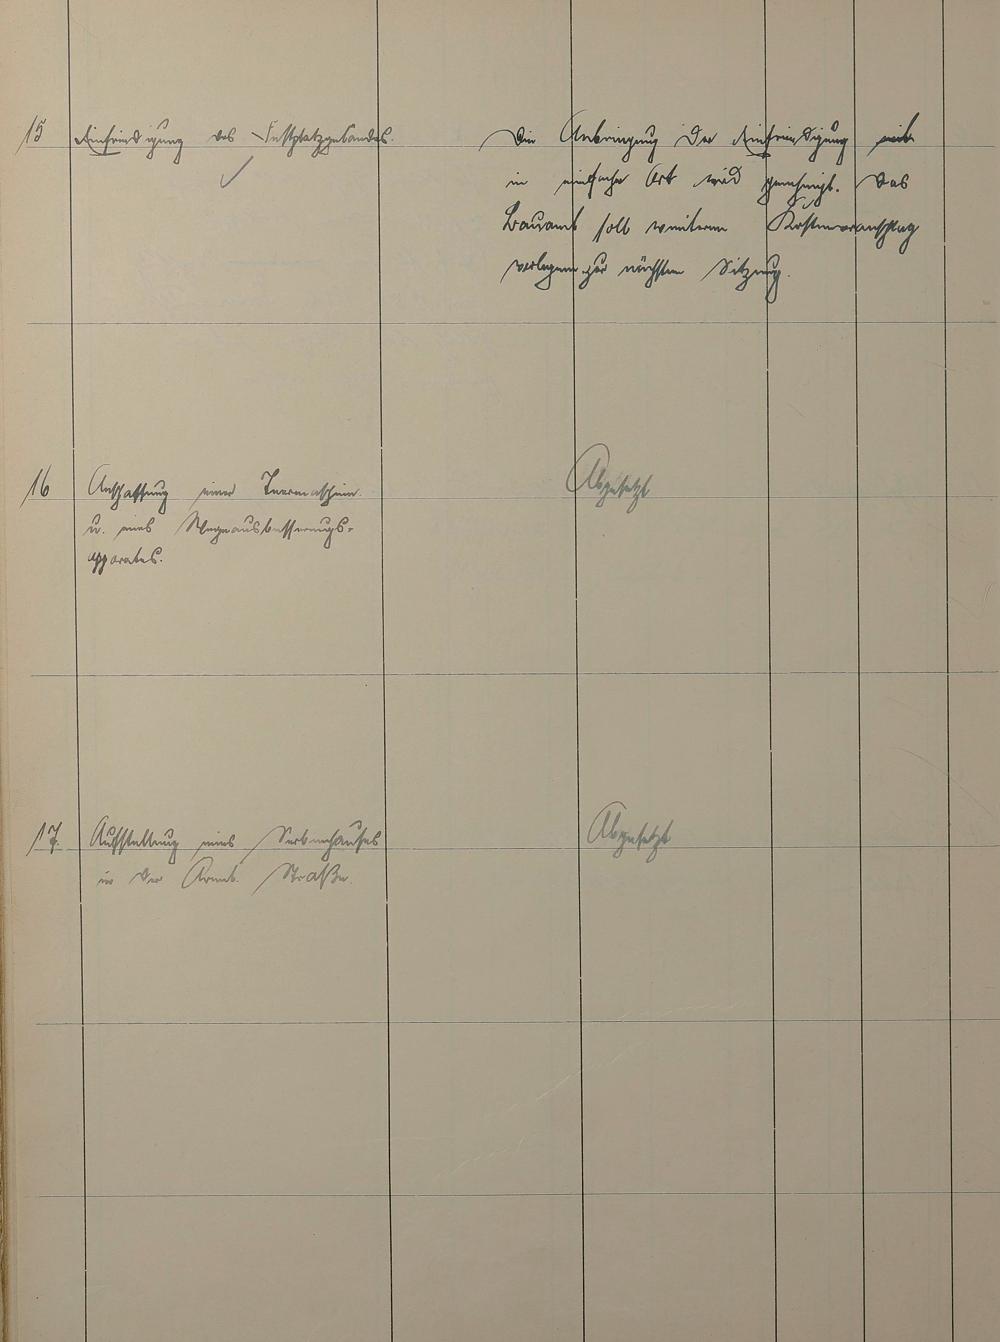 15 Einfriedigung des Festplatzgeländes.
Die Anbringung der Einfriedigung
in einfacher Art wird genehmigt. Das
Bauamt soll weiteren Kostenvoranschlag
vorlegen zur nächsten Sitzung.
16 Anschaffung einer Teermaschine
u. eines Wegeausbesserungs-
apparates.
Abgesetzt
17. Aufstellung eines
in der Straße.
Abgesetzt